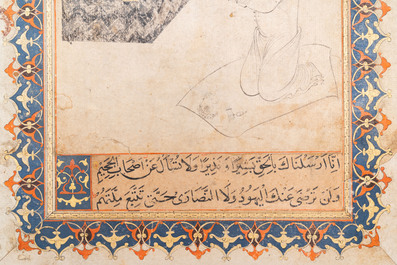 انا ارسلناك بالحق بشيرا و نذيرا ولا تسأل عن اصحاب الجحيم
ولن ترضى عنك اليهود ولا النصارى حتى تتبع ملتهم